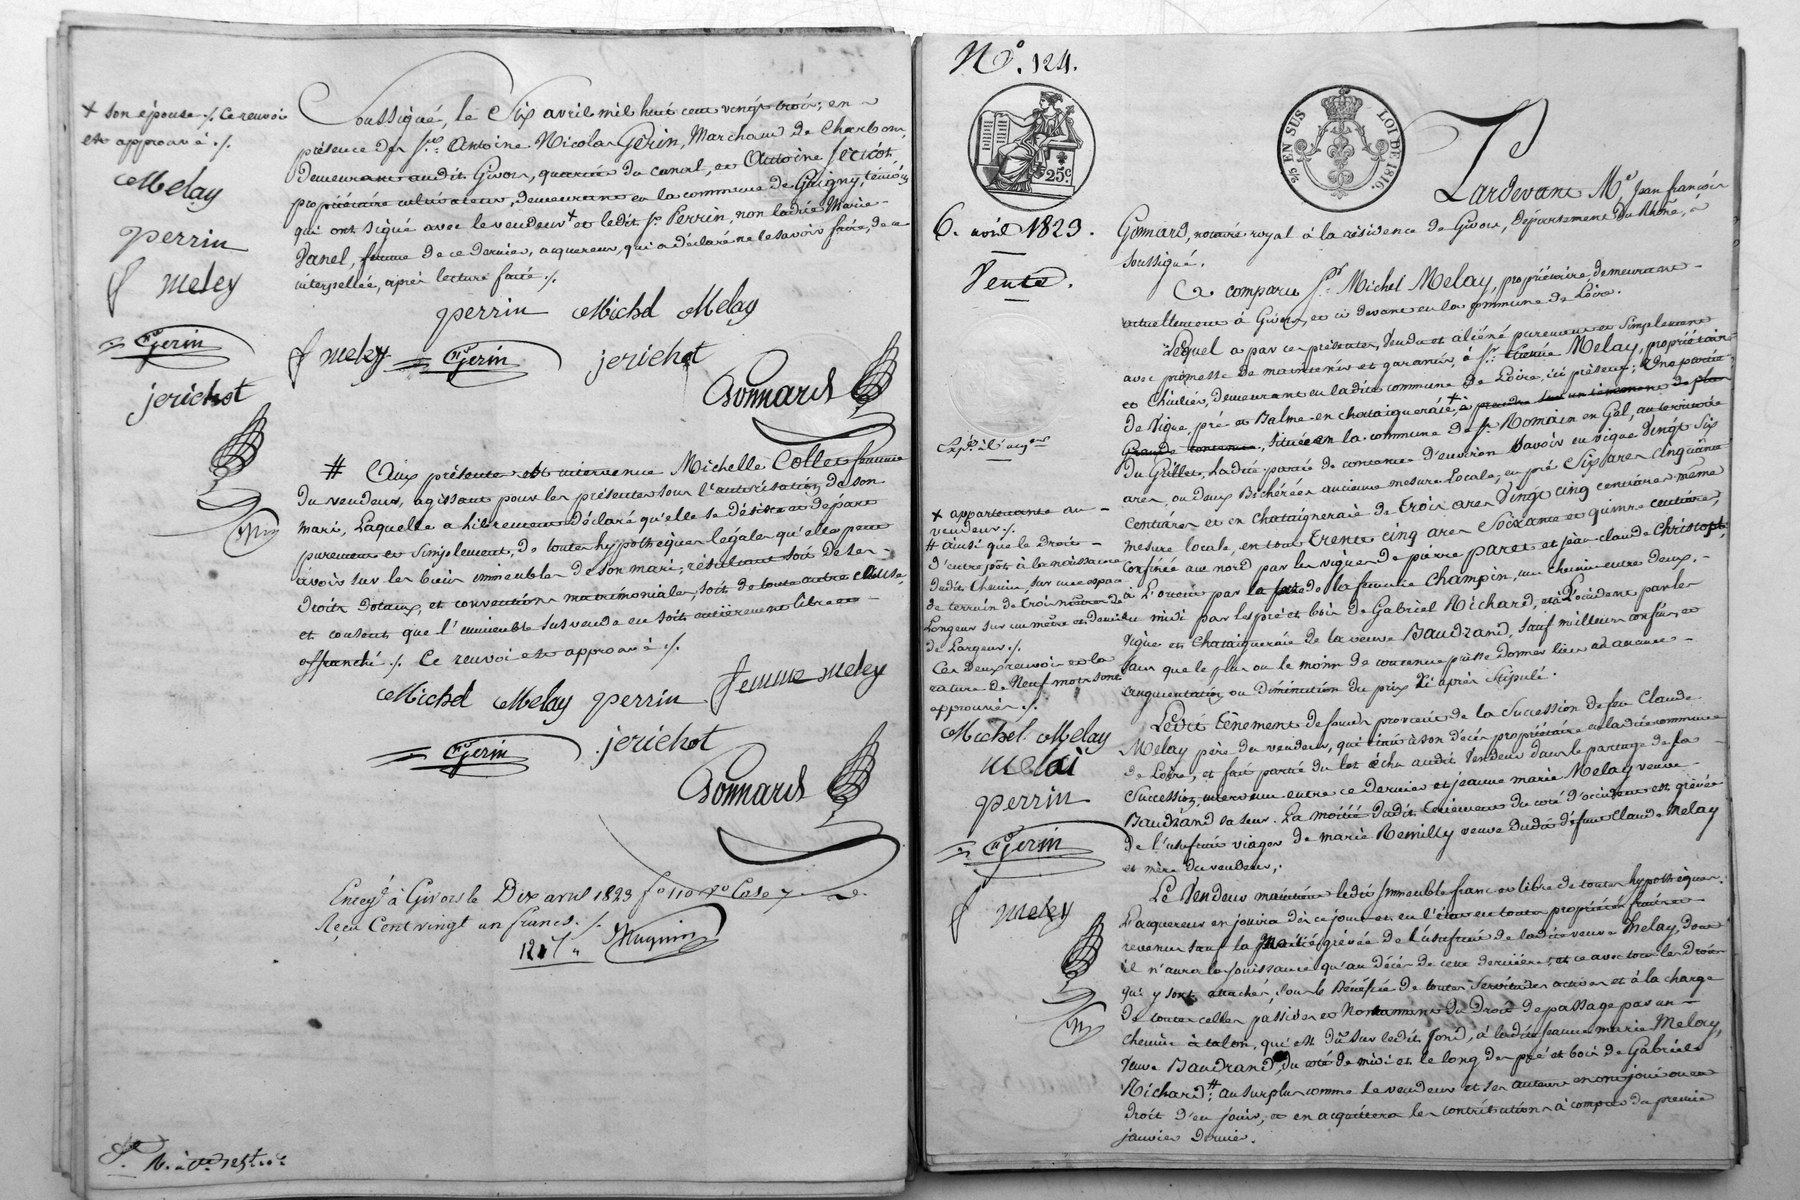 + son épouse ./. Ce renvoi
est approuvé ./.
Melay
perrin
f meley
Gerin
jerichot
Soussigné, le Six avril mil huit cent vingt trois; en
présence des Srs Antoine Nicolas Gerin, Marchand de Charbon,
demeurant audit Givors, quartier du canal, et Antoine Jericot
propriétaire cultivateur, demeurant en la commune de Grigny, témoins
qui ont signé avec le vendeur + et ledit Sr Perrin, non ladite Marie
Vanel, femme de ce dernier, acquereur, qui a déclaré ne le savoir faire, de ce
interpellée, après lecture faite ./.
perrin Michel Melay
f meley Gerin jerichot
Gonnard
# Aux présentes est intervenue Michelle Collet femme
du vendeur, agissant pour les présentes sous l'autorisation de son
mari, Laquelle a librement déclaré qu'elle se désiste et départ
purement et simplement, de toutes hypothèques légales qu'elle peut
avoir sur les biens immeubles de son mari, résultant soit de ses
droits dotaux, et conventions matrimoniales, soit de toute autre cause,
et consent que l'immeuble sus vendu en soit entièrement libre et
affranchi ./. Ce renvoi est approuvé ./.
Michel Melay perrin femme meley
Gerin jerichot
Gonnard
Enregé à Givors le Dix avril 1823 fo 110 Vo Case 7
Reçu Cent vingt un francs ./.
121 f "
No. 124.
25 c.
5/5 EN SUS LOI DE 1816.
6. avril 1823.
Vente.
Pardevant Me Jean françois
Gonnard, notaire royal à la résidence de Givors, Département du Rhône, à
soussigné.
A comparu Sr Michel Melay, propriétaire demeurant
actuellement à Givors, et ci devant en la commune de Loire.
Lequel a par ces présentes, Vendu et aliéné purement et simplement
avec promesse de maintenir et garantir, à Sr Etienne Melay, propriétaire
et Huilier, demeurant en ladite commune de Loire, ici présent; Une partie
de Vigne, pré et Balme en chataigneraie, + à prendre sur un tènement de plus
Grande contenue, Située en la commune de St Romain en Gal, au territoire
du Grillet, Ladite partie de contenue d'environ Savoir en vigne Vingt Six
ares ou deux Bichérées ancienne mesure Locale, en pré Six ares cinquante
Centiares et en chataigneraie de trois ares Vingt cinq centiares même
mesure locale, en tout trente cinq ares Soixante et quinze centiares,
Confinée au nord par les vignes de pierre paret et jean claude Christoph,
à L'orient par la de la famille Champin, un chemin entre deux,
au midi par les pré et bois de Gabriel Richard, et à L'occident par les
Vigne et chataigneraie de la veuve Baudrand, sauf meilleurs confins, et
sans que le plus ou le moins de contenue puisse donner lieu à aucune
augmentation ou diminution du prix ci après Stipulé.
Ledit tènement de fonds provient de la Succession de feu Claude
Melay père du vendeur, qui était à son décès propriétaire en ladite commune
de Loire, et fait partie du lot échu audit Vendeur dans le partage de sa
Succession, intervenu entre ce dernier et jeanne marie Melay veuve
Baudrand sa sœur. La moitié dudit tènement du coté d'occident est grévée
de l'usufruit viager de marie Remilly veuve dudit défunt Claude Melay
et mère du vendeur,.
Le Vendeur maintient ledit Immeuble franc et libre de toutes hypothèques.
L'acquereur en jouira dès ce jour et en l'état en toute propriété fruits et
revenus sauf la Moitié grévée de l'usufruit de ladite veuve Melay, dont
il n'aura la jouissance qu'au décès de cette dernière, et ce avec tous les droits
qui y sont attachés, sous le Bénéfice de toutes Servitudes actives et à la charge
de toutes celles passives et Notament du Droit de passage par un
chemin à talon, qui est dû sur ledit fond, à ladite jeanne marie Melay,
Veuve Baudrand, du coté de midi et le long des pré et bois de Gabriel
Richard, # au surplus comme le vendeur et ses auteurs en ont joui ou eu
droit d'en jouir, et en acquittera les contributions à compter du premier
janvier dernier.
+ appartenante au
vendeur ./.
# ainsi que le droit
d'entrepôt à la naissance
dudit chemin, sur un espace
de terrain de trois mètres de
Longeur sur un mètre et demi
de Largeur ./.
Ces deux renvois et la
rature de Neuf mots sont
approuvés ./.
Michel Melay
melai
perrin
Gerin
f meley